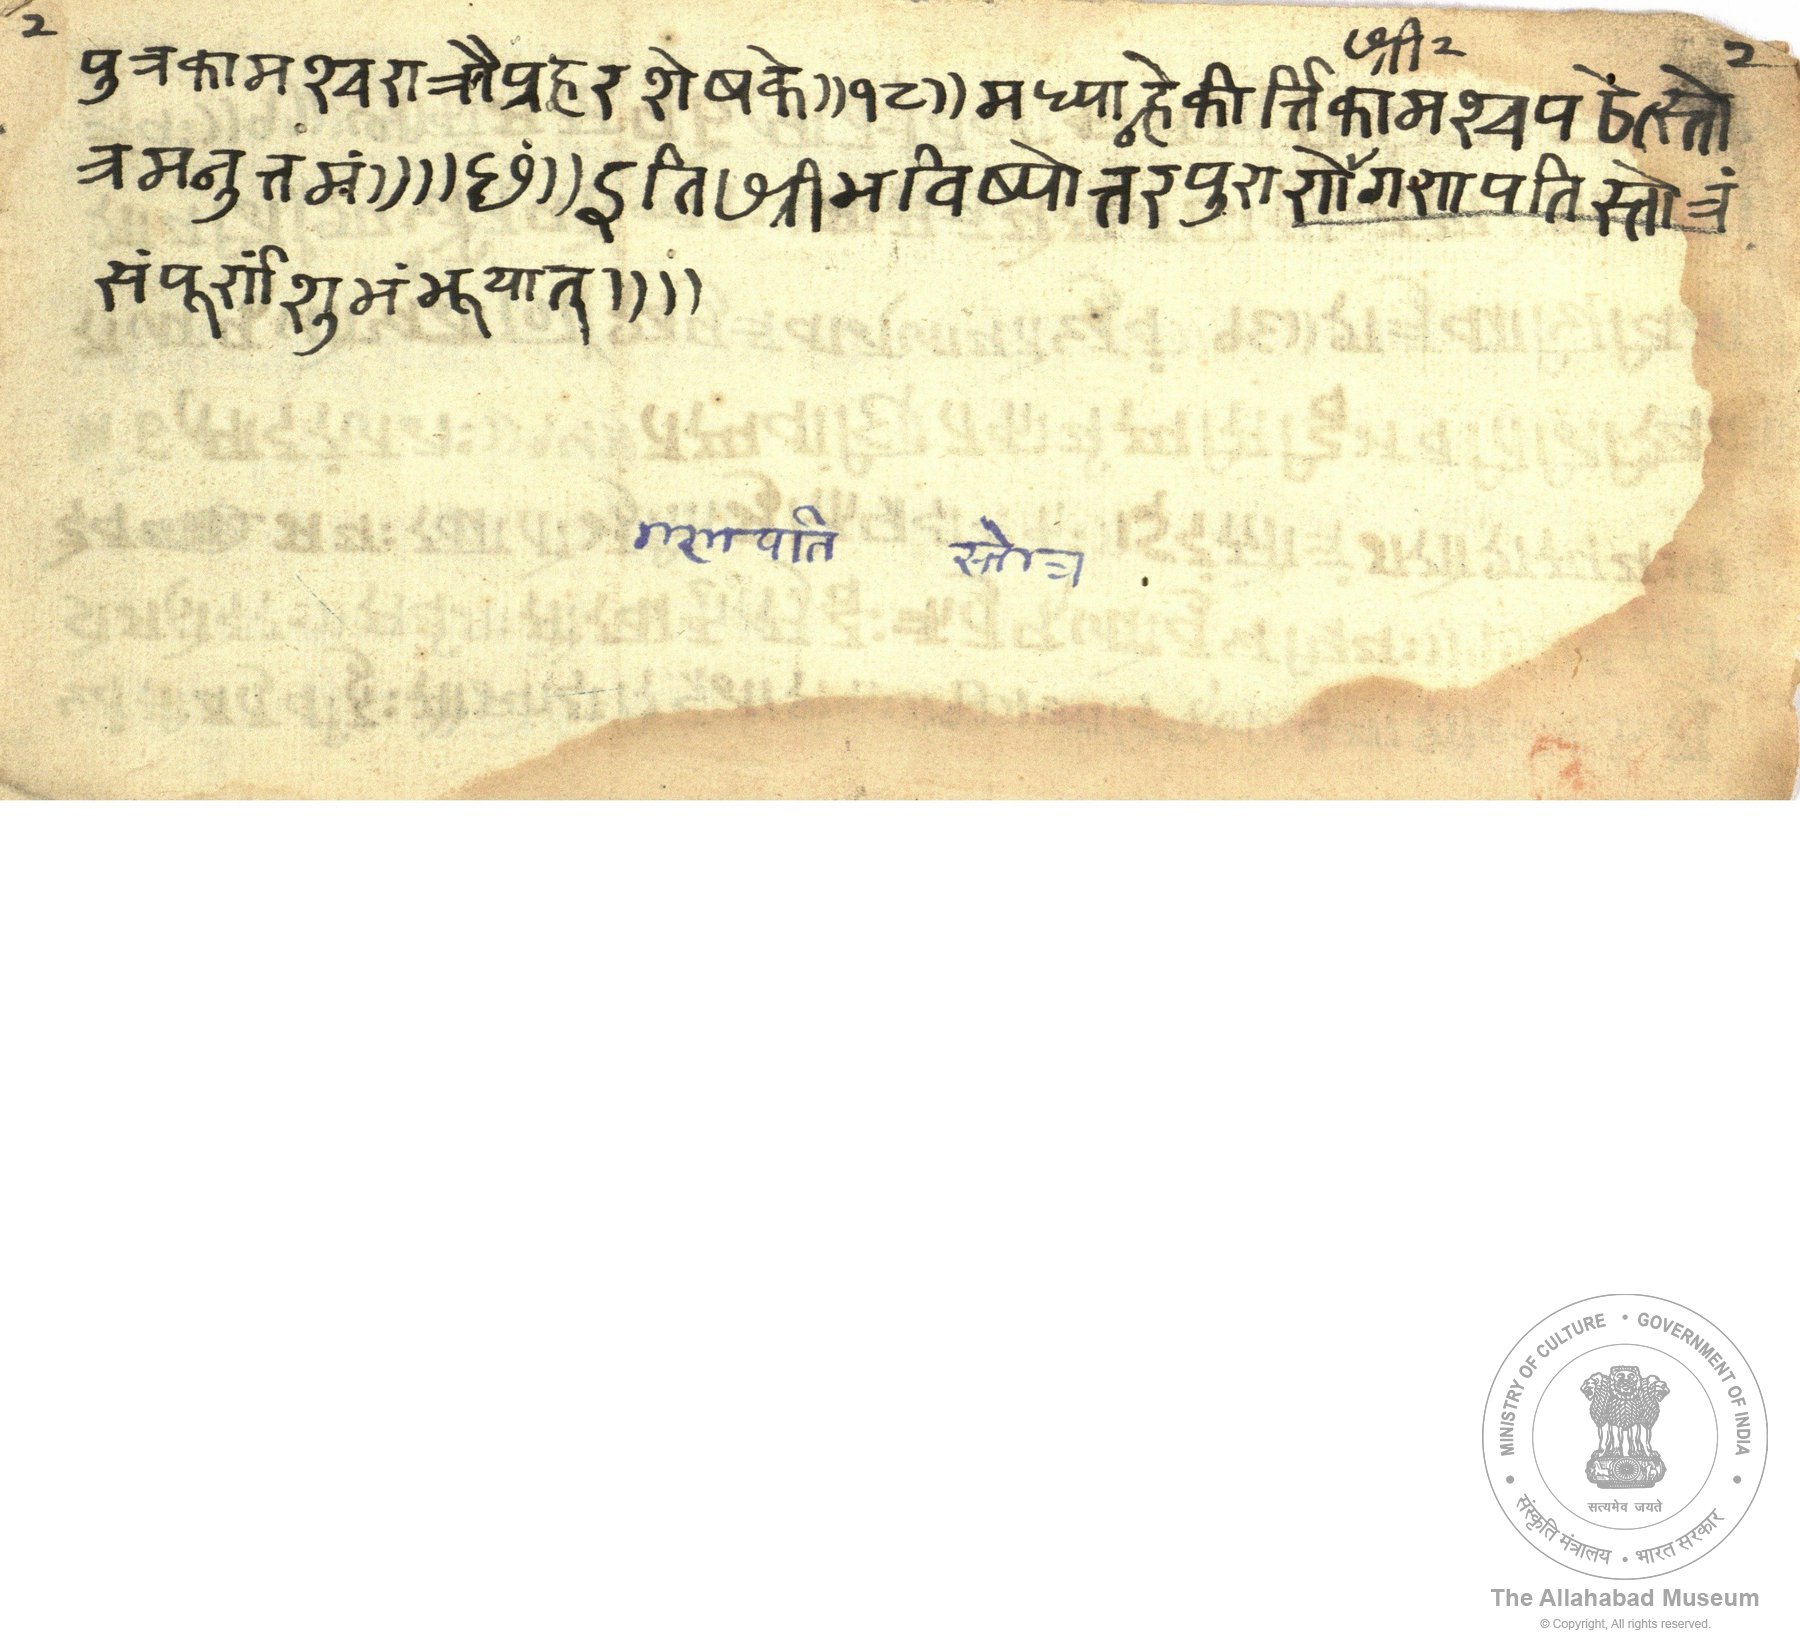 २ श्री २ २
पुत्रकामश्चरात्रौप्रहरशेषके॥१८॥मध्याह्नेकीर्त्तिकामश्चपठेत्स्तो
त्रमनुत्तमं॥॥छं॥इतिश्रीभविष्योत्तरपुराणेगणपतिस्तोत्रं
संपूर्णंशुभंभूयात्॥॥
गणपति स्तोत्र
MINISTRY OF CULTURE • GOVERNMENT OF INDIA
सत्यमेव जयते
संस्कृति मंत्रालय • भारत सरकार
The Allahabad Museum
© Copyright, All rights reserved.